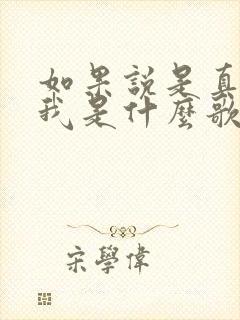 如果説是真
我是什麼歌
宋學偉